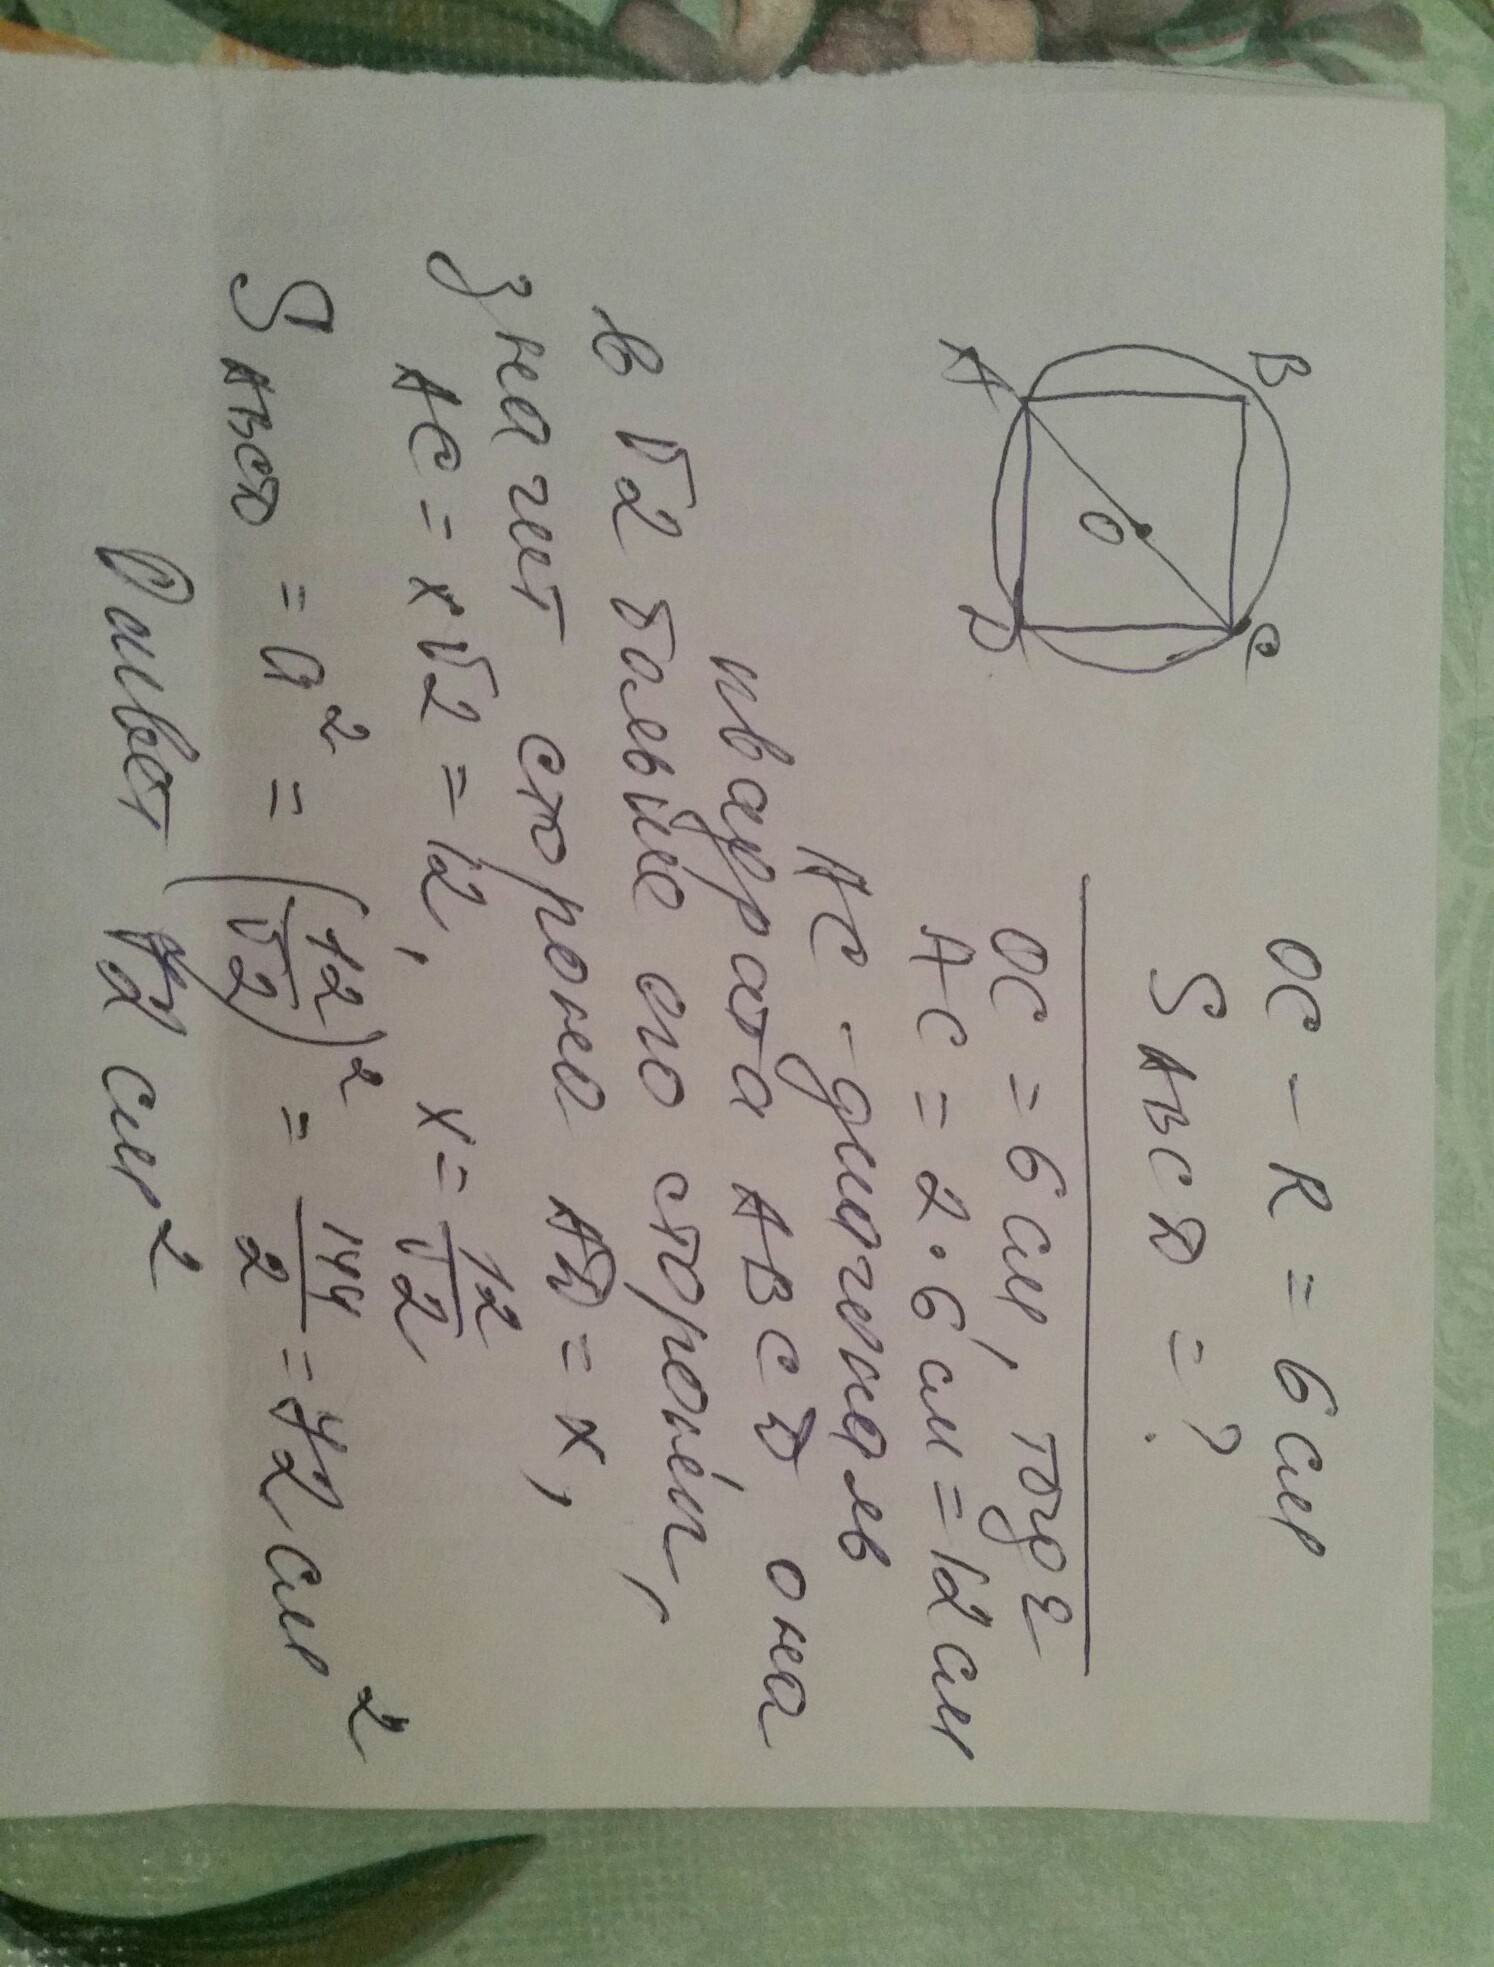 B
C
O
A
D
OC - R = 6 см
S ABCD = ?
OC = 6 см, тогда
AC = 2 · 6 см = 12 см
AC - диагональ
квадрата ABCD она
в √2 больше его сторон,
значит сторона AD = x,
AC = x√2 = 12, x = 12/√2,
S ABCD = a² = (12/√2)² = 144/2 = 72 см²
Ответ 72 см²